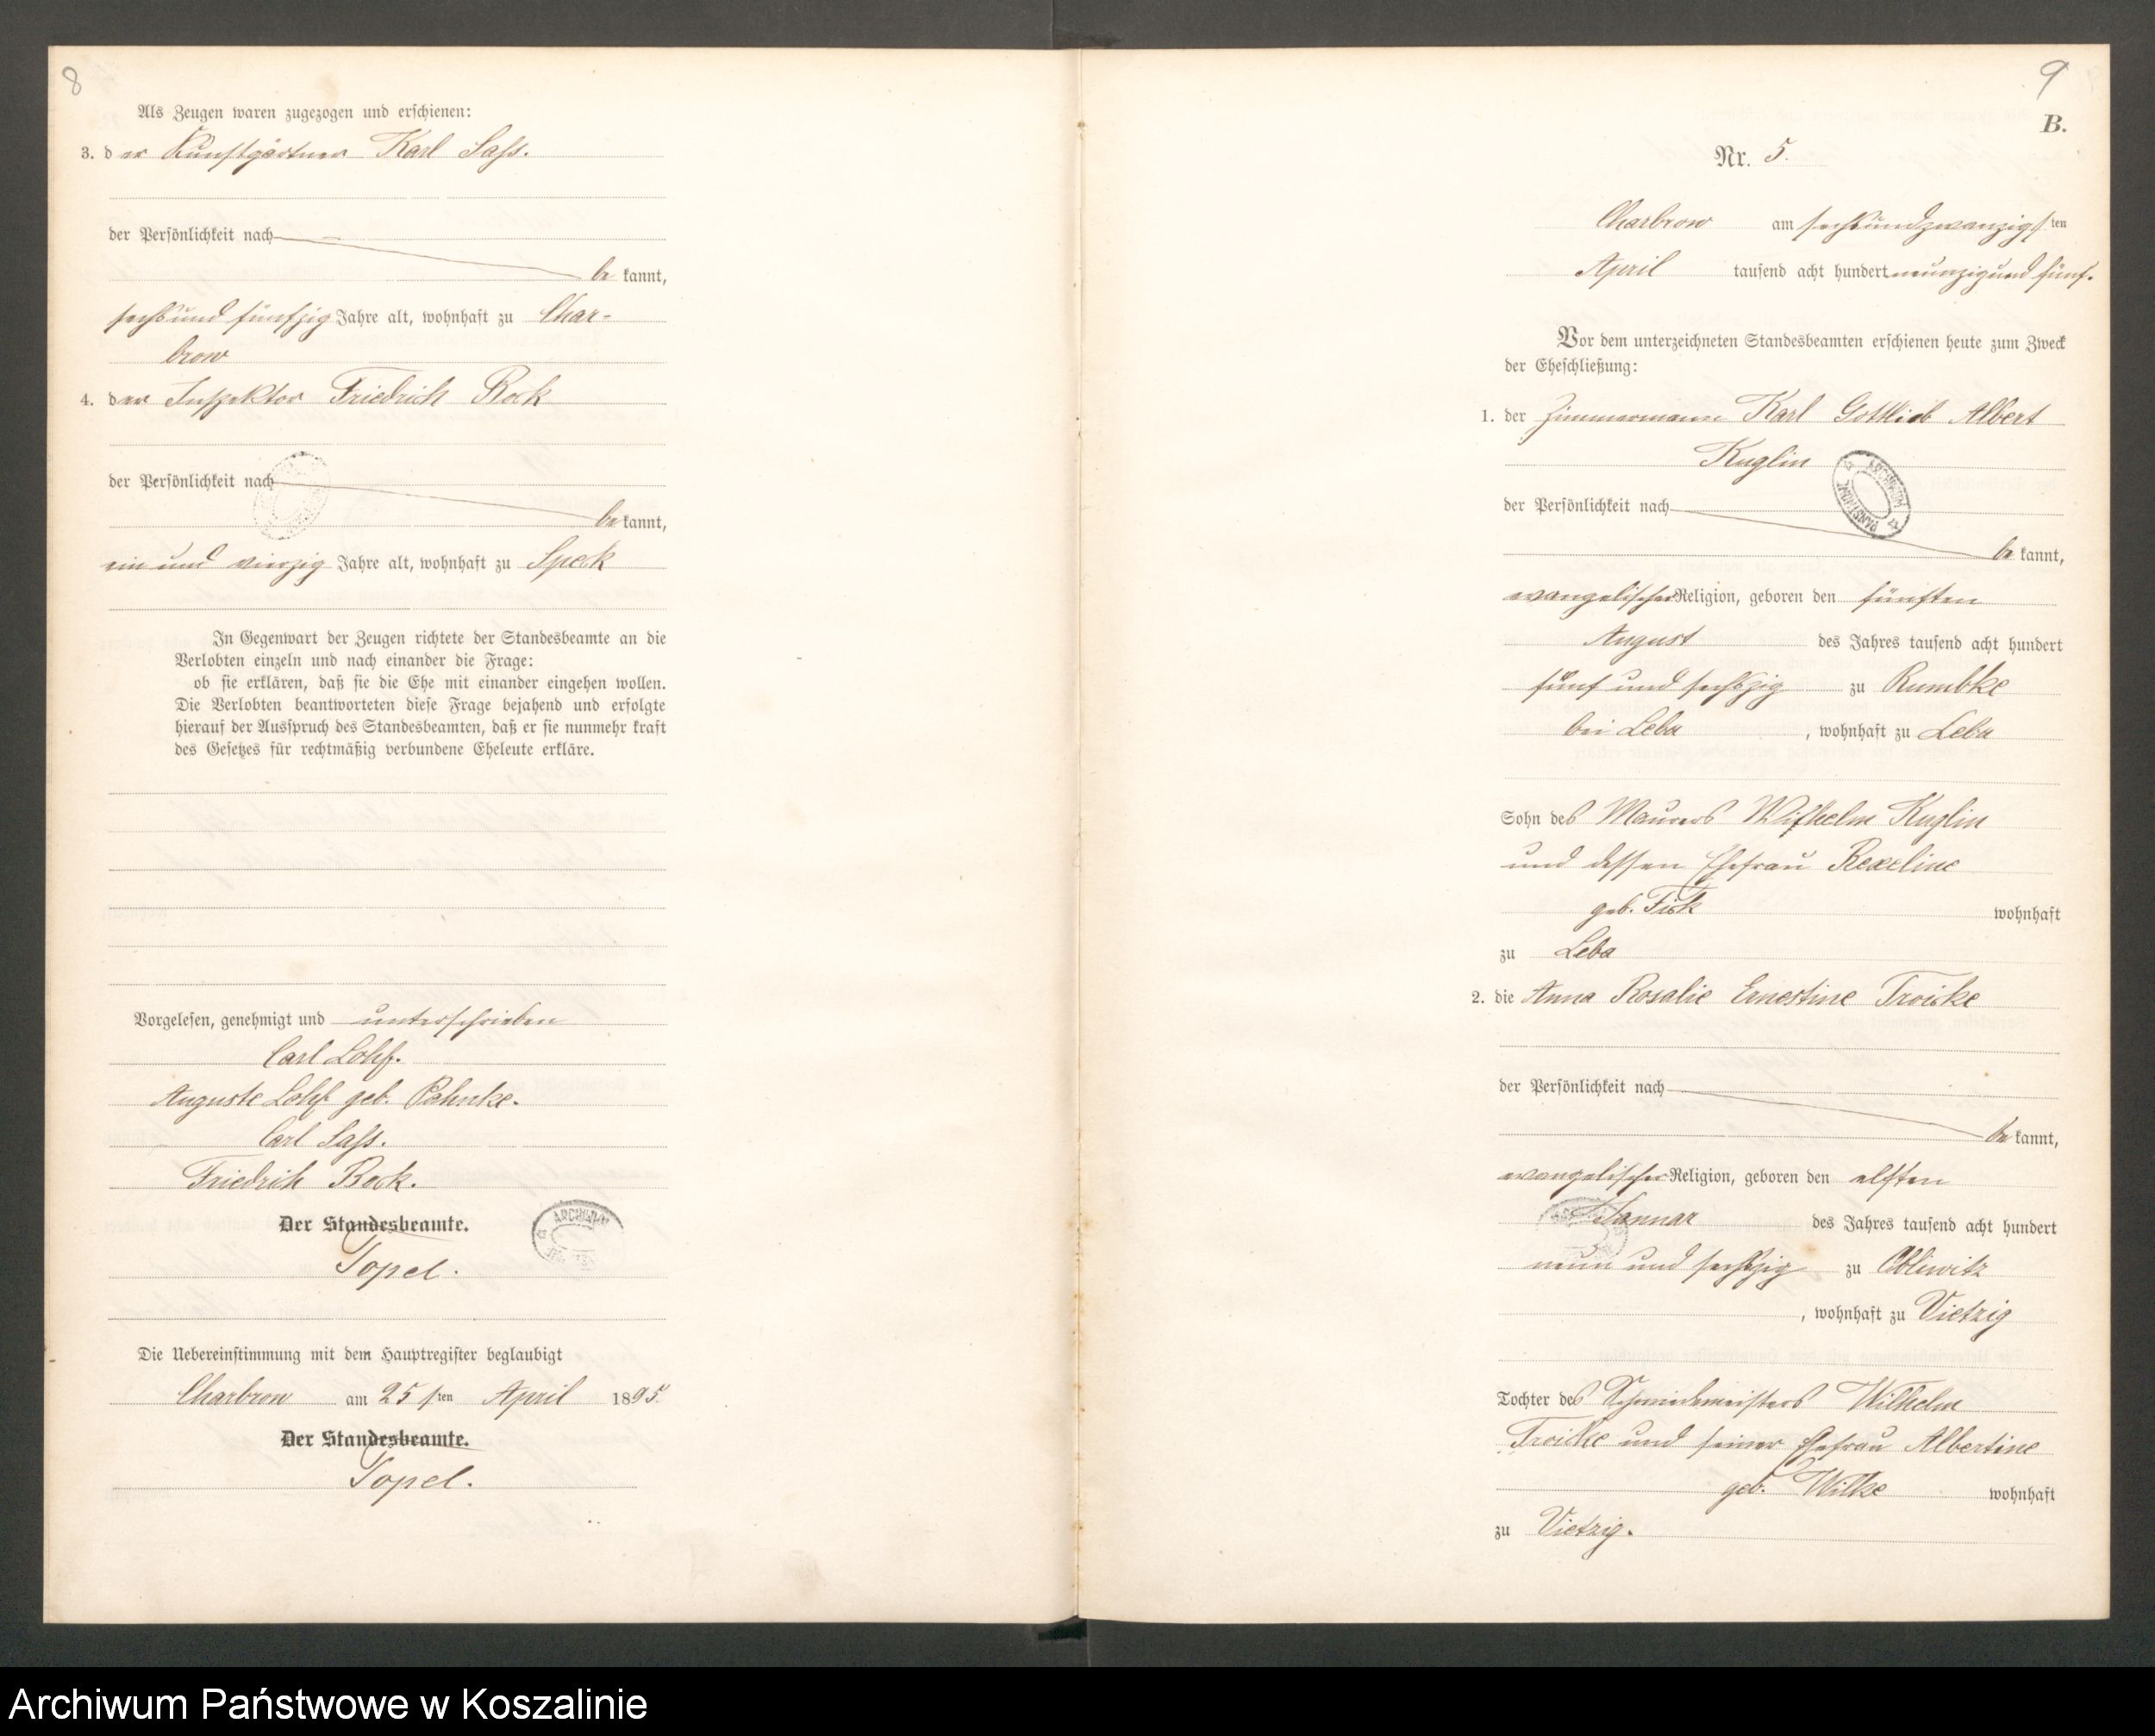 8
Als Zeugen waren zugezogen und erschienen:
3. der Kunstgärtner Karl Sass.
der Persönlichkeit nach
be kannt,
sechsund fünfzig Jahre alt, wohnhaft zu Char-
brow
4. der Inspektor Friedrich Bock
der Persönlichkeit nach
be kannt,
ein und vierzig Jahre alt, wohnhaft zu Speck
In Gegenwart der Zeugen richtete der Standesbeamte an die
Verlobten einzeln und nach einander die Frage:
ob sie erklären, daß sie die Ehe mit einander eingehen wollen.
Die Verlobten beantworteten diese Frage bejahend und erfolgte
hierauf der Ausspruch des Standesbeamten, daß er sie nunmehr kraft
des Gesetzes für rechtmäßig verbundene Eheleute erkläre.
Vorgelesen, genehmigt und unterschrieben
Carl Lohf.
Auguste Lohf geb. Pahnke.
Carl Sass.
Friedrich Bock.
Der Standesbeamte.
Topel.
Die Uebereinstimmung mit dem Hauptregister beglaubigt
Charbrow am 25 sten April 1895.
Der Standesbeamte.
Topel.
9
B.
Nr. 5.
Charbrow am sechsundzwanzigsten
April tausend acht hundert neunzigund fünf.
Vor dem unterzeichneten Standesbeamten erschienen heute zum Zweck
der Eheschließung:
1. der Zimmermann Karl Gottlieb Albert
Kuglin
ARCHIWUM PAŃSTWOWE
der Persönlichkeit nach
be kannt,
evangelischer Religion, geboren den fünften
August des Jahres tausend acht hundert
fünf und sechszig zu Rumbke
bei Leba, wohnhaft zu Leba
Sohn des Maurers Wilhelm Kuglin
und dessen Ehefrau
geb. Fick wohnhaft
zu Leba
2. die Anna Rosalie Ernestine Troicke
der Persönlichkeit nach
be kannt,
evangelischer Religion, geboren den elften
Januar des Jahres tausend acht hundert
neun und sechszig zu Obliwitz
, wohnhaft zu Vietzig
Tochter des Schmiedemeisters Wilhelm
Troicke und seiner Ehefrau Albertine
geb. Wilke wohnhaft
zu Vietzig.
Archiwum Państwowe w Koszalinie